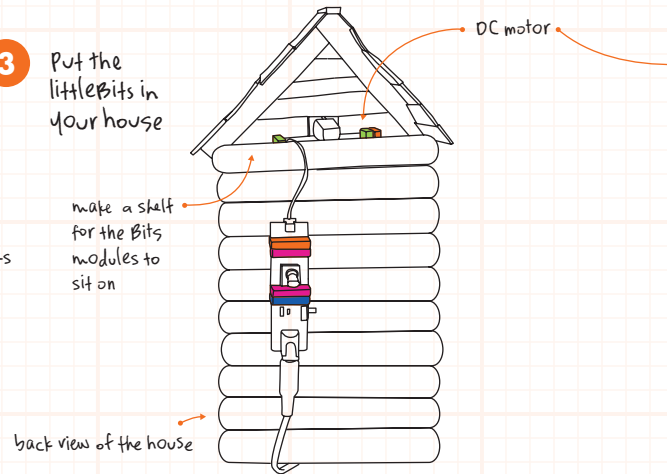 3
Put the
littleBits in
your house
DC motor
make a shelf
for the Bits
modules to
sit on
s
back view of the house